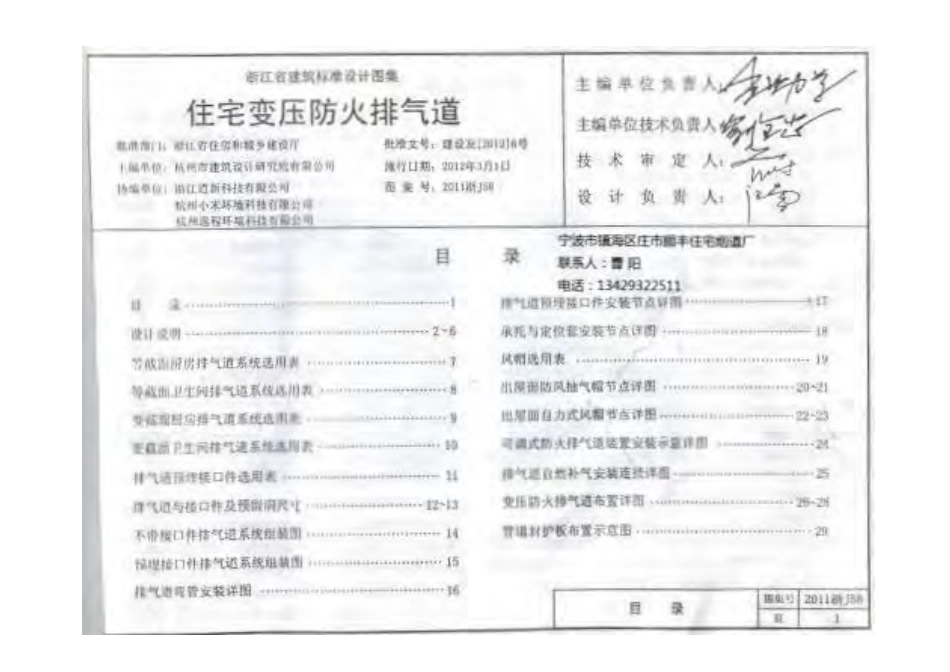 浙江省建筑标准设计图集
住宅变压防火排气道
批准部门：浙江省住房和城乡建设厅
批准文号：建设发[2012]6号
主编单位：杭州市建筑设计研究院有限公司
施行日期：2012年3月1日
协编单位：浙江道新科技有限公司
图集号：2011浙J58
杭州小禾环境科技有限公司
杭州逸程环境科技有限公司
主编单位负责人：
主编单位技术负责人：
技术审定人：
设计负责人：
目 录
宁波市镇海区庄市顺丰住宅烟道厂
联系人：曹 阳
电话：13429322511
目 录 1
设计说明 2~6
等截面厨房排气道系统选用表 7
等截面卫生间排气道系统选用表 8
变截面厨房排气道系统选用表 9
变截面卫生间排气道系统选用表 10
排气道预埋接口件选用表 11
排气道与接口件及预留洞尺寸 12~13
不带接口件排气道系统组装图 14
预埋接口件排气道系统组装图 15
排气道弯管安装详图 16
排气道预埋接口件安装节点详图 17
承托与定位套安装节点详图 18
风帽选用表 19
出屋面防风抽气帽节点详图 20~21
出屋面自力式风帽节点详图 22~23
可调式防火排气道装置安装示意详图 24
排气道自然补气安装连接详图 25
变压防火排气道布置详图 26~28
管道封护板布置示意图 29
目 录
图集号 2011浙J58
页 1